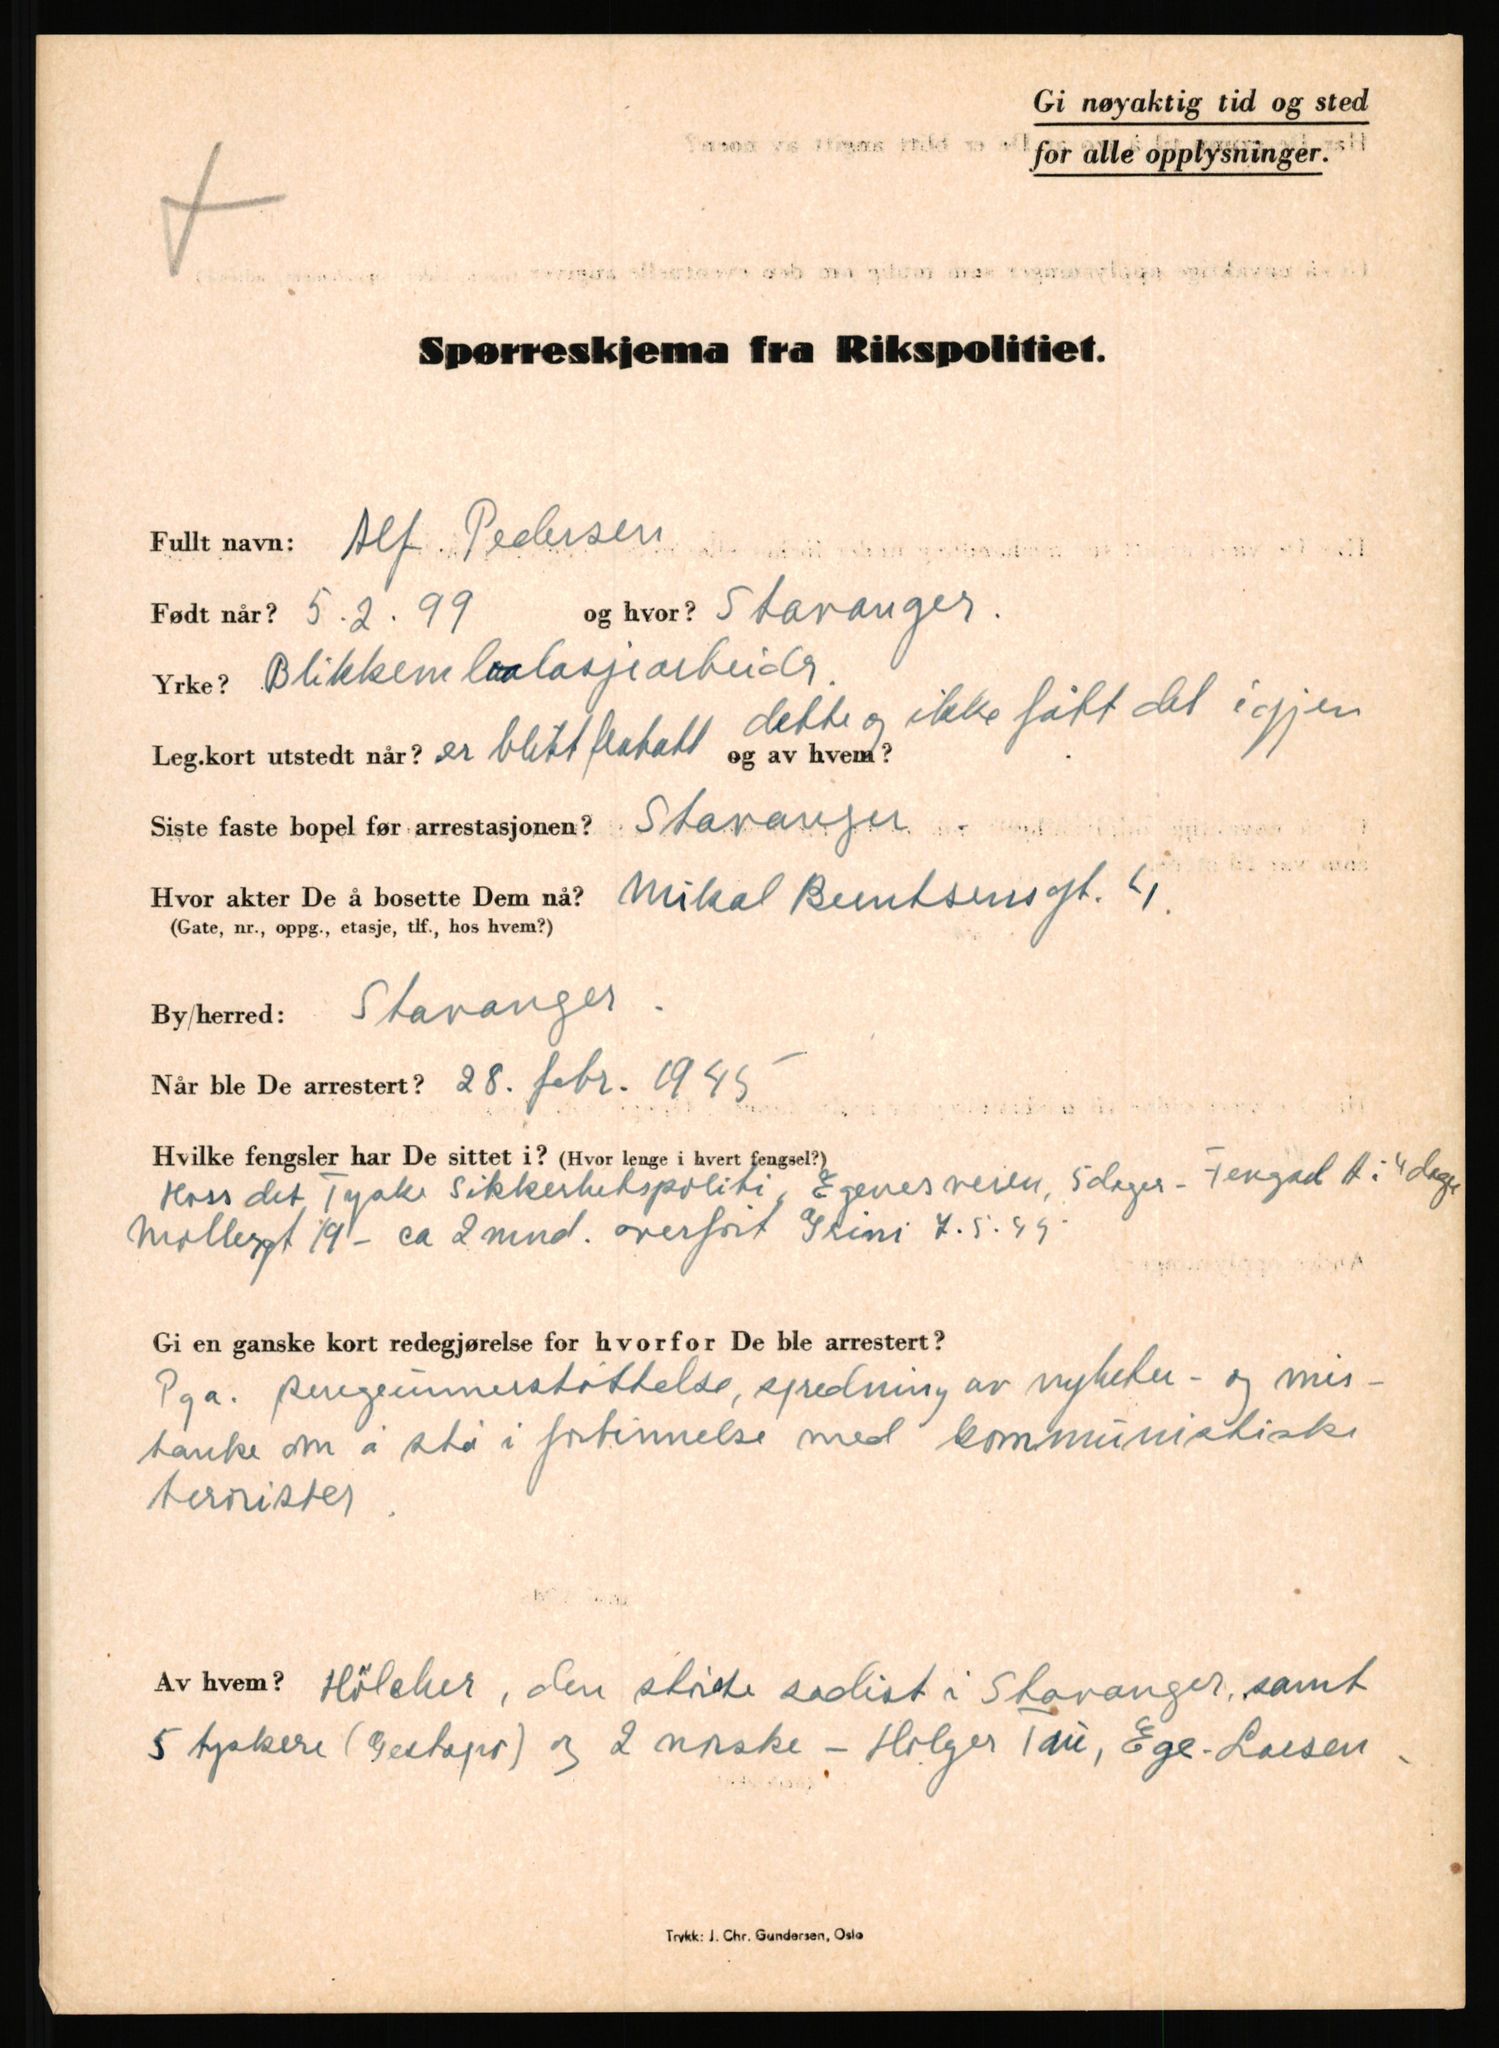 Gi nøyaktig tid og sted
for alle opplysninger.
Spørreskjema fra Rikspolitiet.
Fullt navn: Alf Pedersen
Født når? 5.2.99 og hvor? Stavanger.
Yrke? Blikkemballasjearbeidr.
dette og ikke fått det igjen
Leg.kort utstedt når? er blitt fratatt og av hvem?
Siste faste bopel før arrestasjonen? Stavanger
Hvor akter De å bosette Dem nå? Mikal Berntsensgt. 4.
(Gate, nr., oppg., etasje, tlf., hos hvem?)
By/herred: Stavanger.
Når ble De arrestert? 28. febr. 1945
Hvilke fengsler har De sittet i? (Hvor lenge i hvert fengsel?)
Hoss det Tyske Sikkerhetspoliti, Egenesveien, 5 dager - A: 4 dage
Møllergt 19 - ca 2 mnd. overført Grini 7.5.45
Gi en ganske kort redegjørelse for hvorfor De ble arrestert?
Pga. pengeunnerstøttelse, spredning av nyheter - og mis-
tanke om å stå i forbinnelse med kommunistiske
terorister.
Av hvem? Hölcher, den störste sadist i Stavanger, samt
5 tyskere (Gestapo) og 2 norske - Holger Tau, Ege-Larsen
Trykk: J. Chr. Gundersen, Oslo